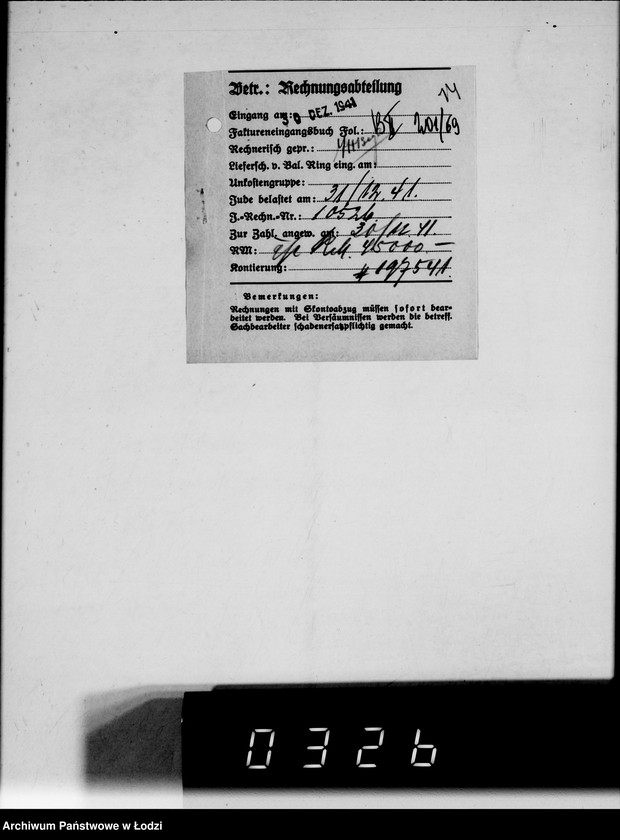 Betr.: Rechnungsabteilung
14
Eingang am: 30 DEZ. 1941
Faktureneingangsbuch Fol.: 201/69
Rechnerisch gepr.:
Liefersch. v. Bal. Ring eing. am:
Unkostengruppe:
Jude belastet am: 31/12.41.
J.-Rechn.-Nr.: 10526
Zur Zahl. angew. am: 30/12.41.
RM: RM. 45000.—
Kontierung: # 197541.
Bemerkungen:
Rechnungen mit Skontoabzug müssen sofort bear-
beitet werden. Bei Versäumnissen werden die betreff.
Sachbearbeiter schadenersatzpflichtig gemacht.
0326
Archiwum Państwowe w Łodzi